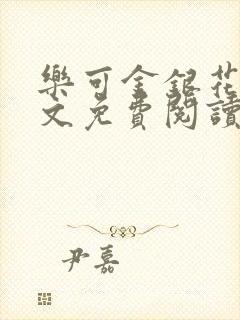 樂可金銀花
文免費閱讀
尹嘉